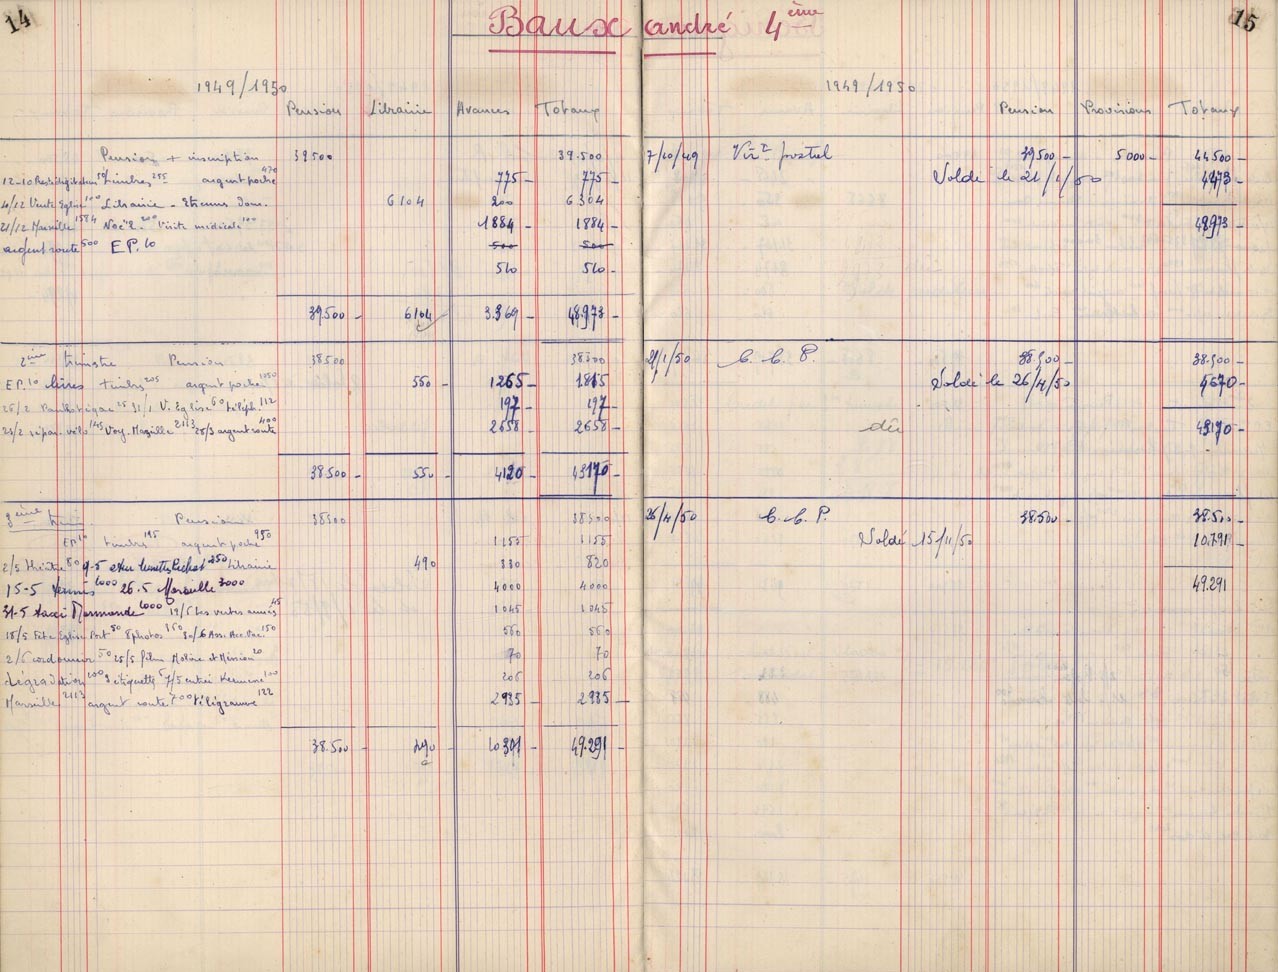 14
15
Baux andré 4ème
1949/1950
Pension Librairie Avances Totaux
Pension + inscription 39500 39.500
timbres 255 argent poche 470 775 - 775 -
Librairie - Etrennes dom. 6104 200 6304
21/12 Marseille 1584 Noël 200 Visite médicale 100 1884 1884 -
argent route 500 E.P. 10 500 500 -
510 510 -
39.500 - 6104 3.369 - 48.973 -
2ème trimestre Pension 38500 38500
E P. 10 livres timbres 205 argent poche 1050 550 - 1265 - 1815 -
31/1 V. Eglise 60 téléph. 112 197 - 197 -
répar. vélo 145 Voy. Marseille 2113 25/3 argent route 400 2658 - 2658 -
38500 - 550 - 4120 - 43170 -
3ème trim. Pension 38500 38500
E P 10 timbres 195 argent poche 950 1155 1155
2/5 théâtre 80 9-5 Librairie 490 330 820
15-5 tennis 1000 26.5 Marseille 3000 4000 4000
31-5 taxi Marmande 1000 19/6 Les vertes années 45 1045 1045
18/5 Fête Eglise Port 50 8 photos 560 560
2/6 cordonnier 50 25/5 film Molière et Mission 20 70 70
Dégradation 200 étiquette 6 206 206
Marseille 2113 argent route 700 télégramme 122 2935 - 2935 -
38.500 - 490 - 10301 - 49.291 -
1949/1950
Pension Provisions Totaux
7/10/49 Virt postal 39500 - 5000 - 44500 -
Soldé le 21/1/50 4473 -
48973 -
21/1/50 C. C. P. 38.500 - 38.500 -
Soldé le 26/4/50 4670 -
dû 43170 -
26/4/50 C. C. P. 38.500 - 38.500 -
Soldé 15/11/50 10.791 -
49.291